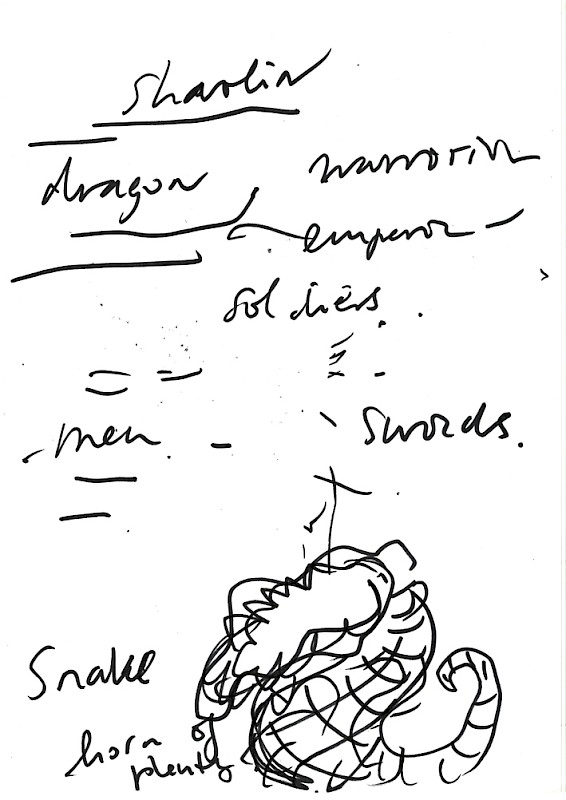 Shaolin
dragon
warrorin
emperor
soldiers.
men.
swords.
Snake
horn of
plenty